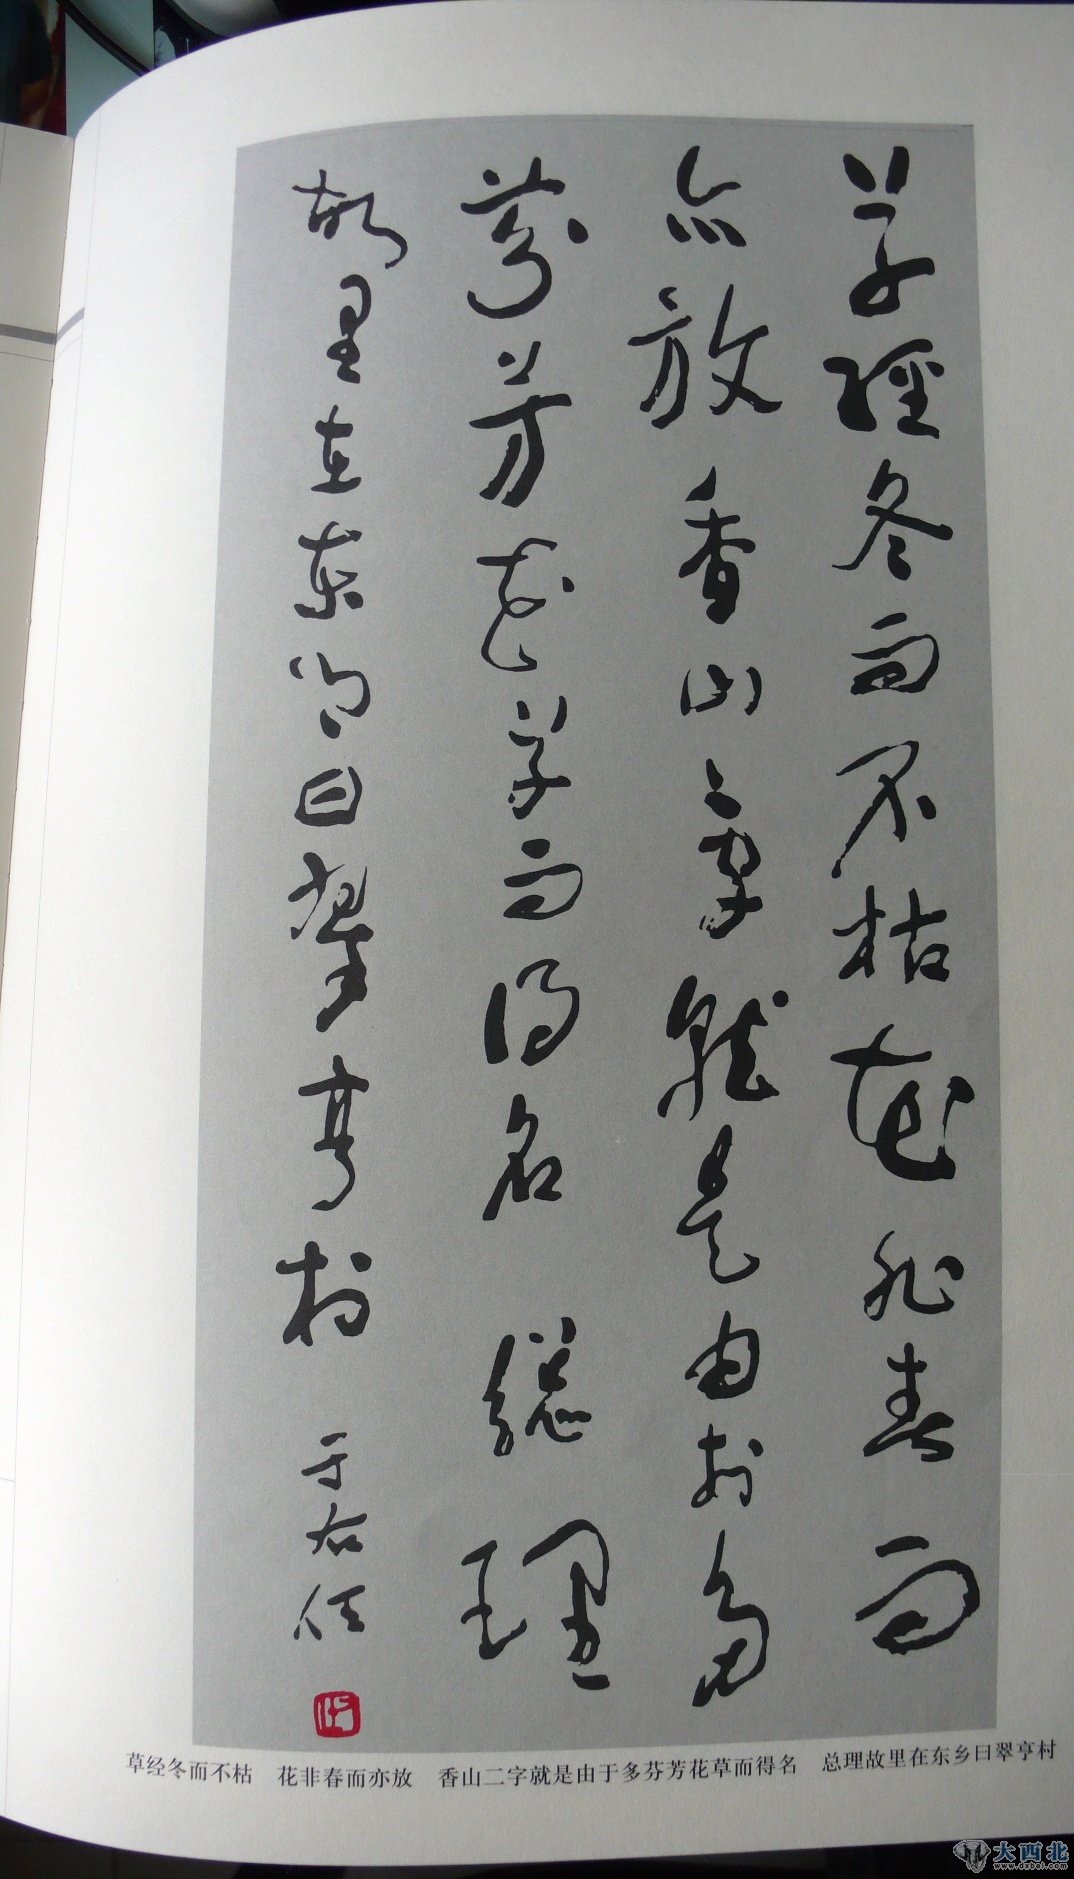 草經冬而不枯花非春而
亦放香山二字就是由於多
芬芳花草而得名總理
故里在东乡曰翠亨村
于右任
草经冬而不枯　花非春而亦放　香山二字就是由于多芬芳花草而得名　总理故里在东乡曰翠亨村
大西北
www.dxbei.com